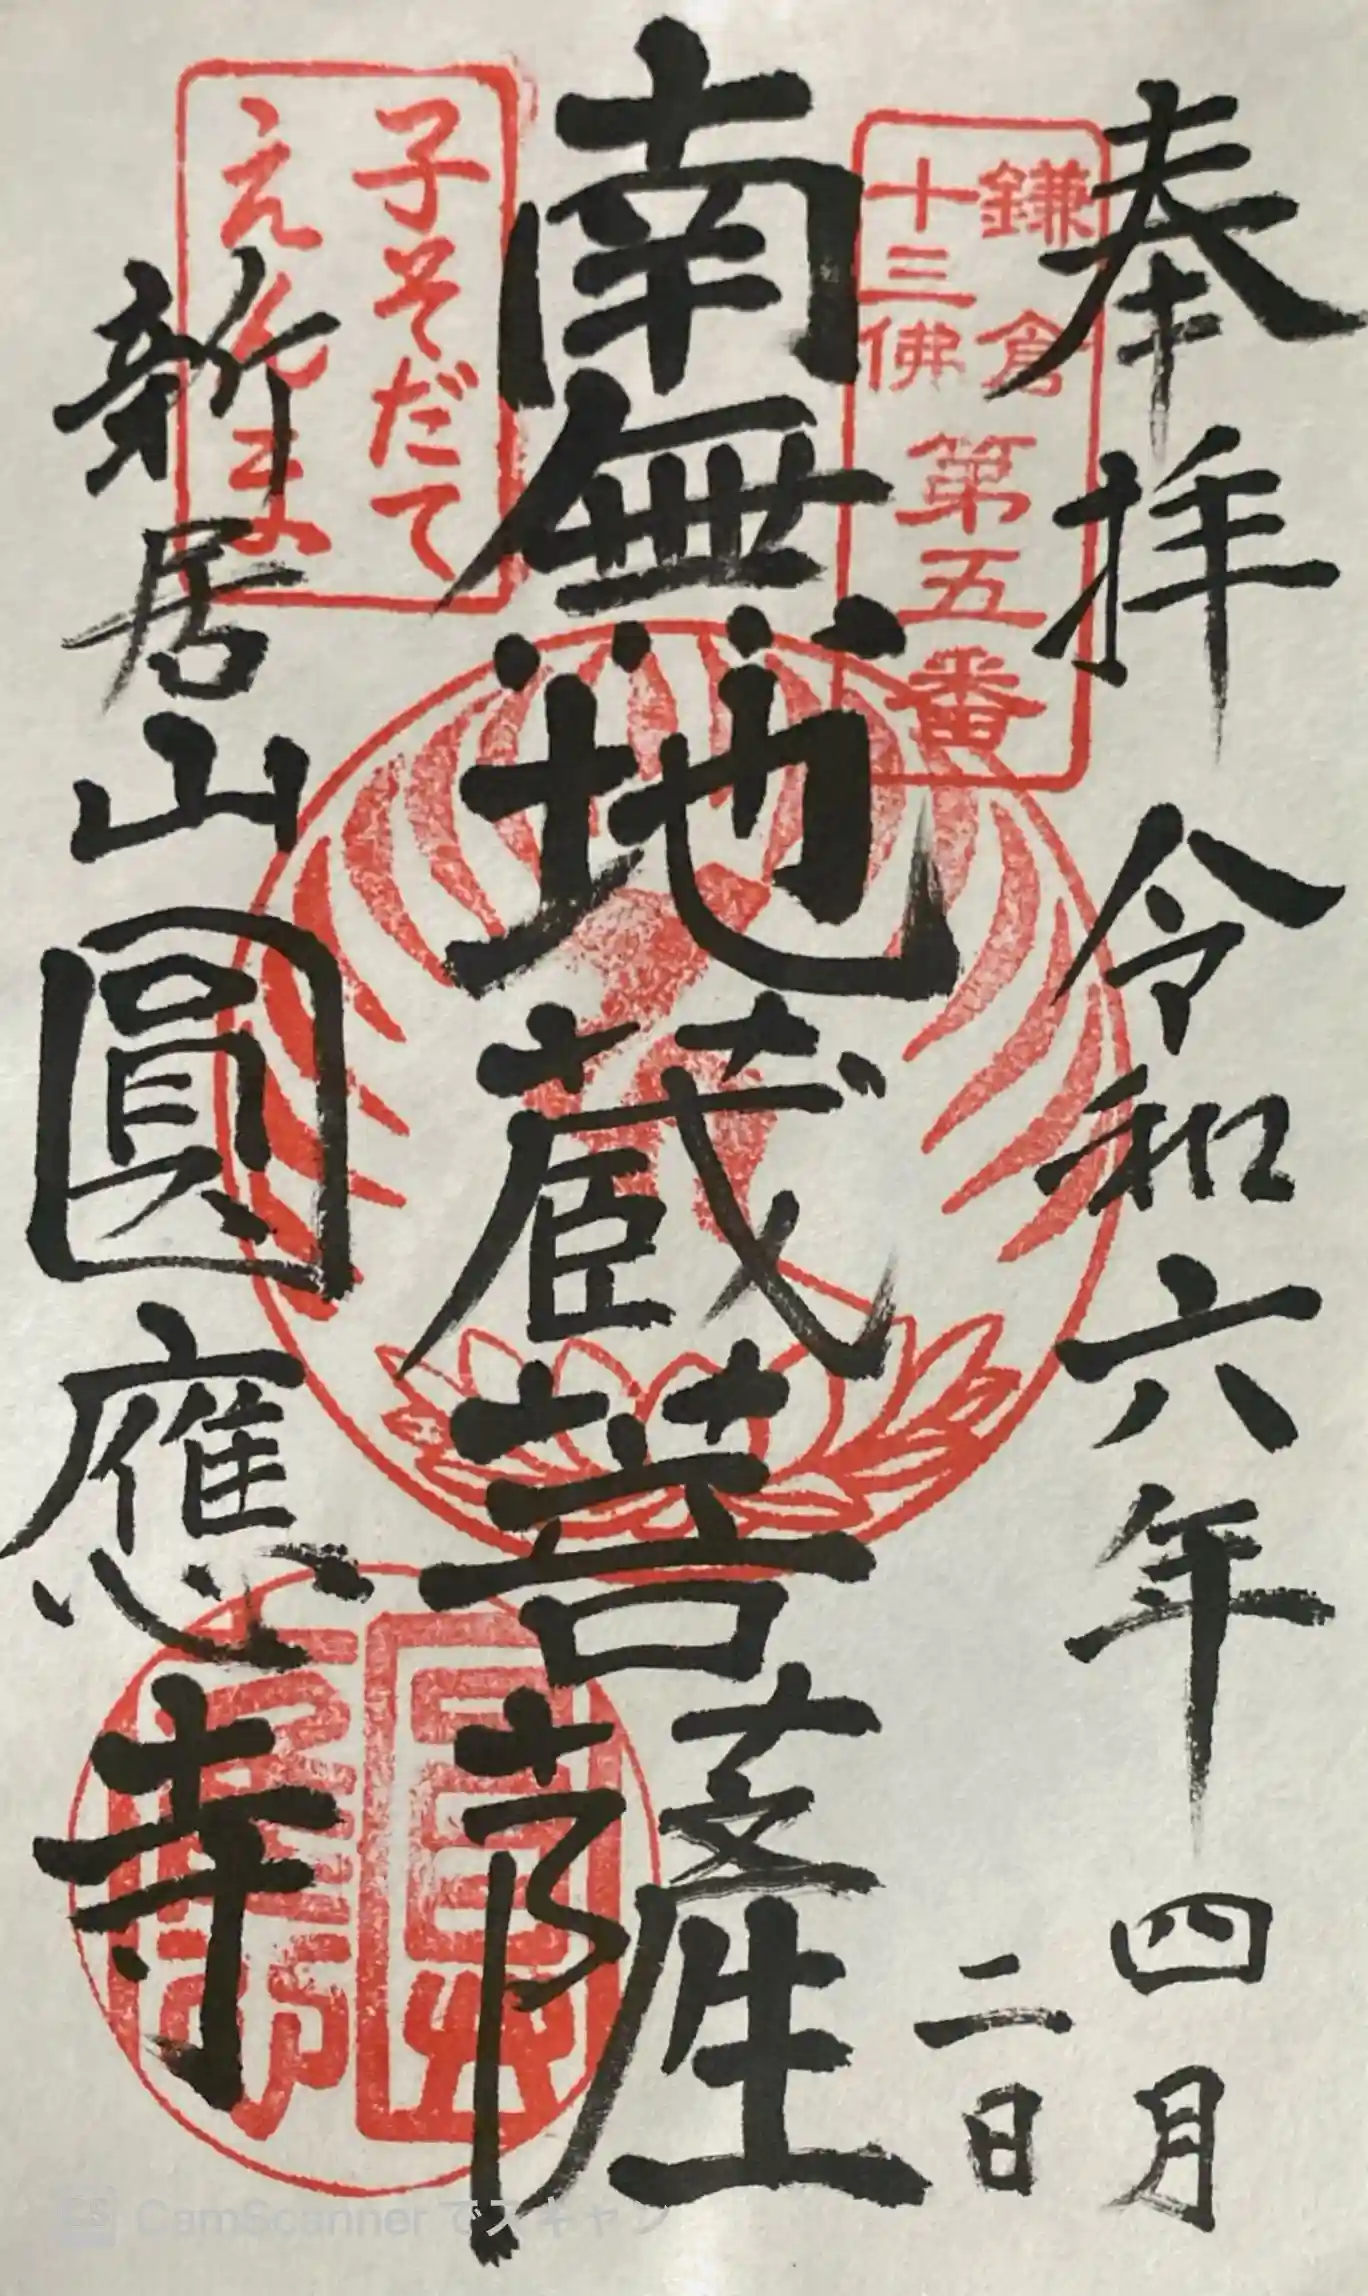 奉拝 令和六年 四月
二日
鎌倉
十三佛
第五番
南無地蔵菩薩
子そだて
えんま
新居山圓應寺
CamScannerでスキャン